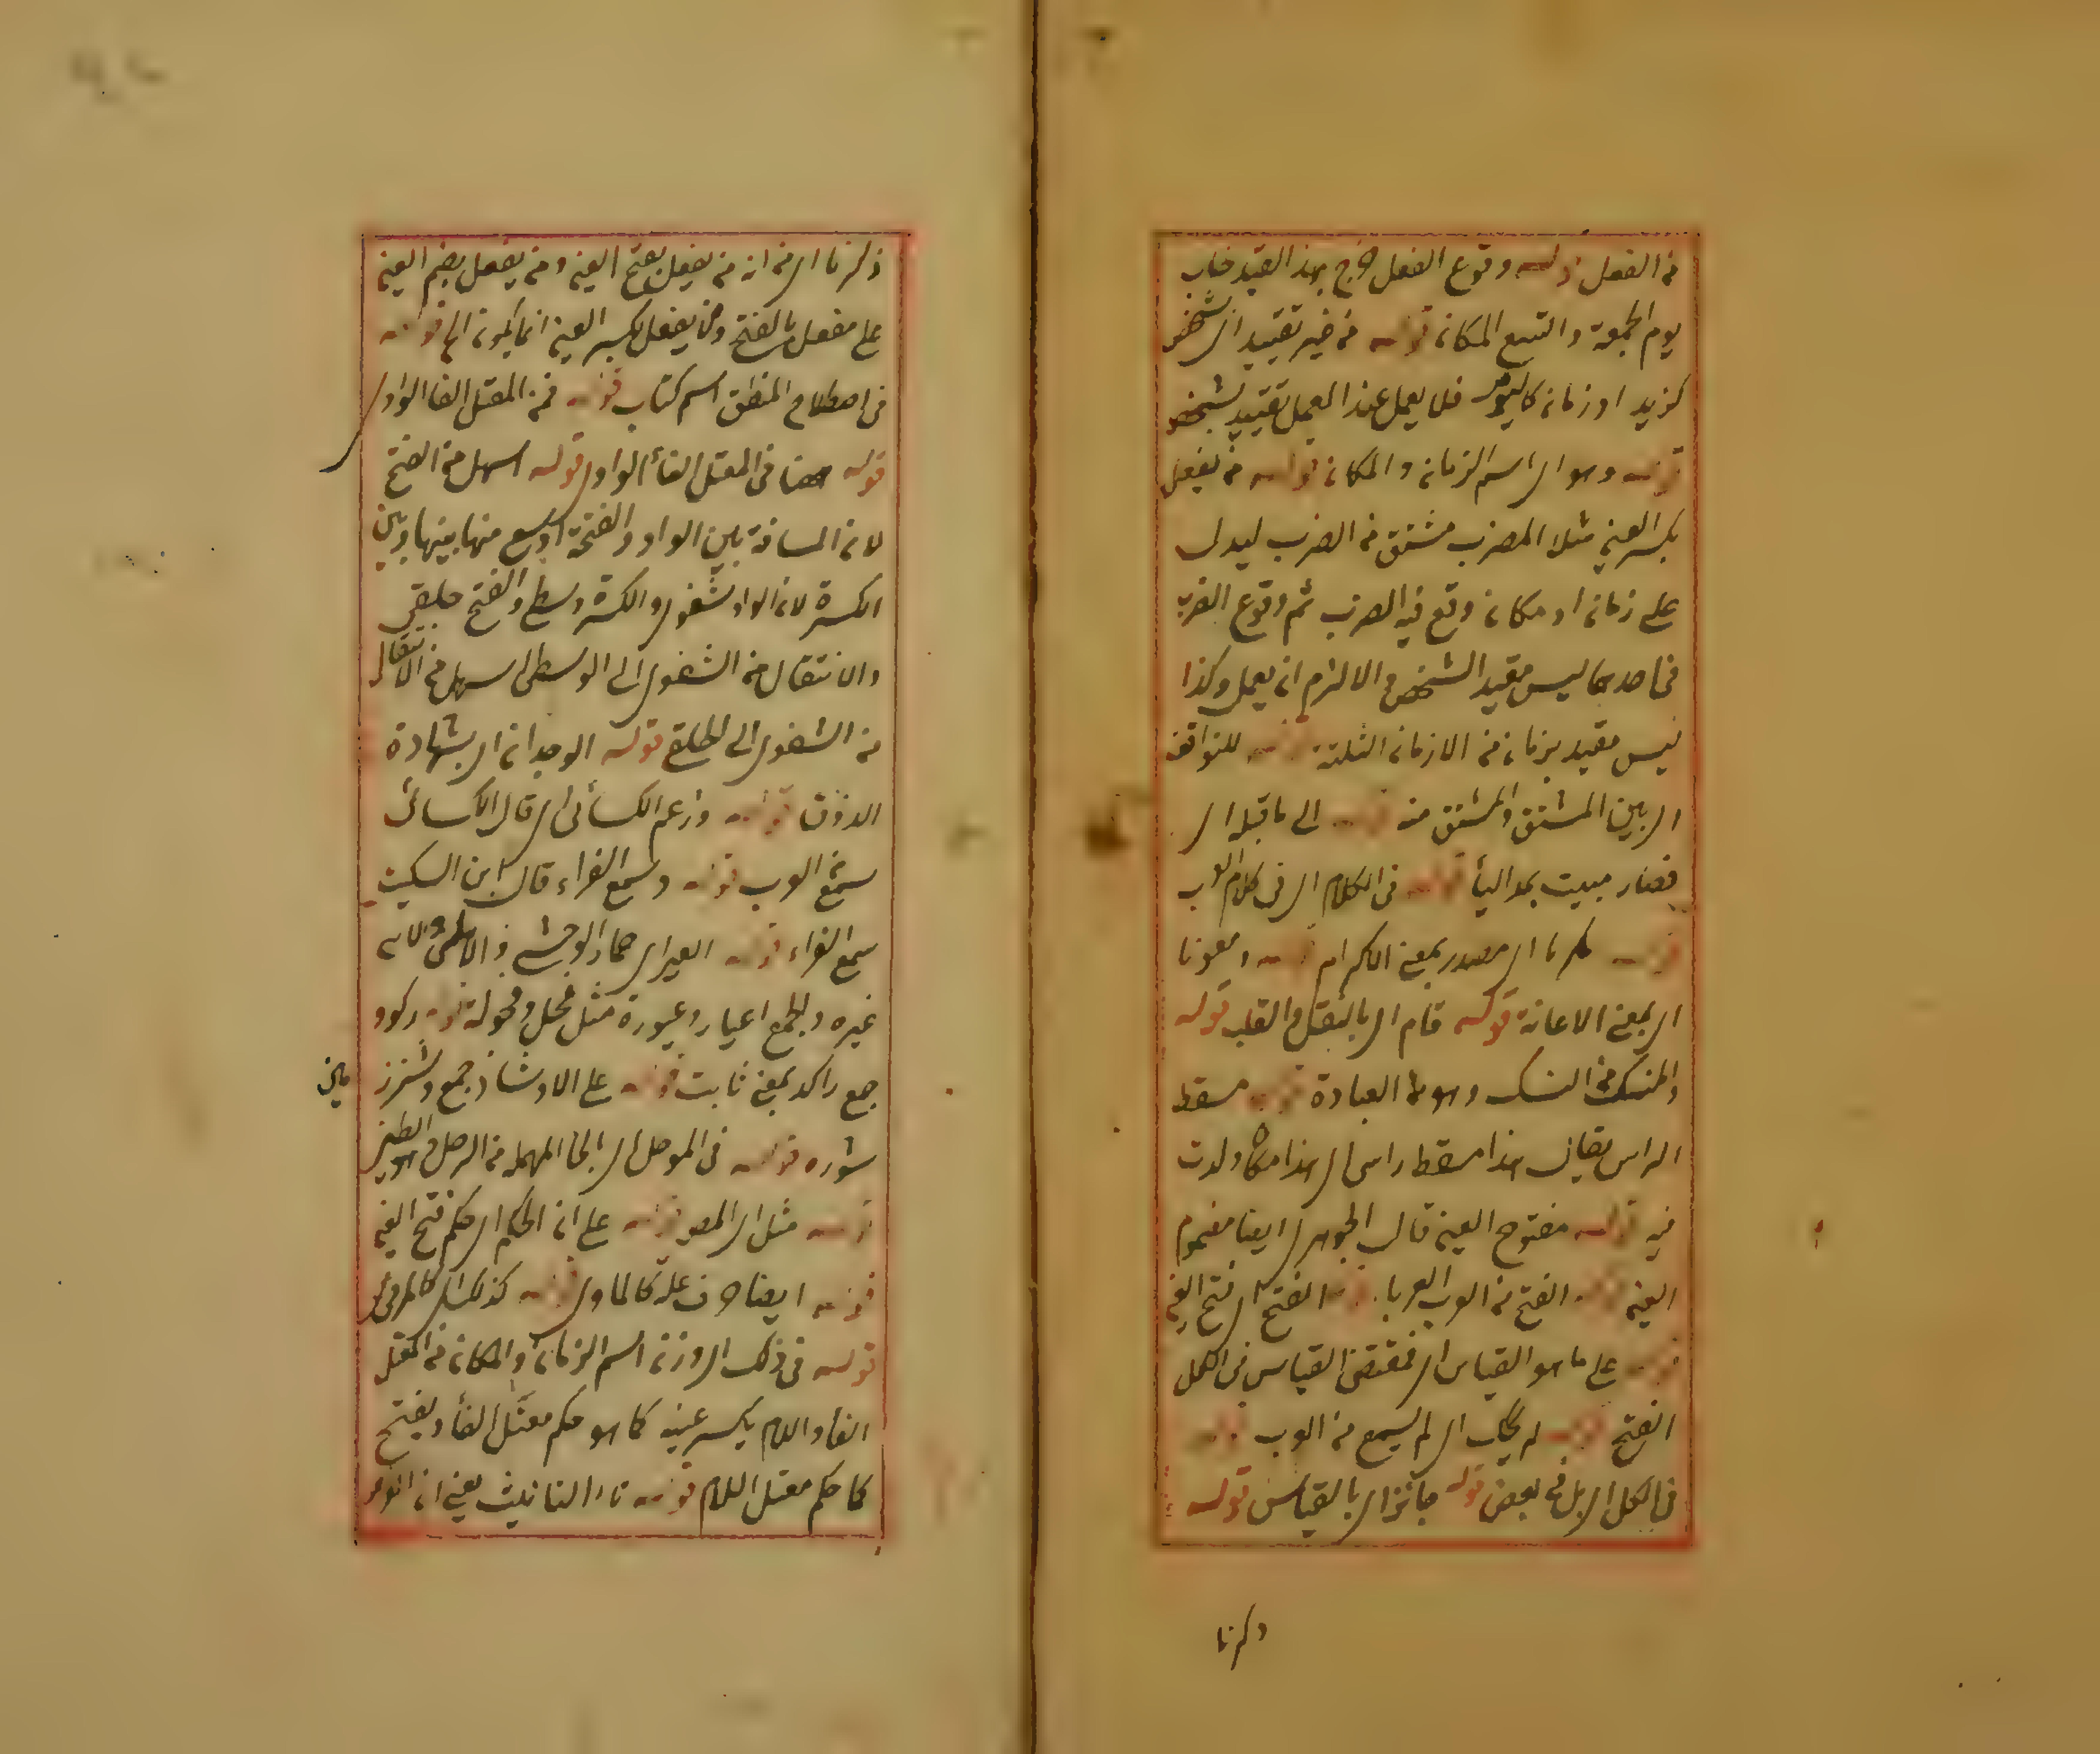 من الفعل قوله وقوع الفعل خرج بهذا القيد خاب
يوم الجمعة واتسع المكان قوله من غير تقييد اى شخص
كزيد او زمان كاليوم فلا يعمل عند العمل تقييد بشخص
قوله وهو اى اسم الزمان والمكان قوله من يفعل
بكسر العين مثلا المضرب مشتق من الضرب ليدل
على زمان او مكان وقع فيه الضرب ثم وقوع الضرب
فى احدهما ليس مقيد الشخص والا لزم ان يعمل وكذا
ليس مقيد بزمان من الازمان الثلثة قوله للتوافق
اى بين المشتق والمشتق منه قوله الى ما قبله اى
فصار مبيت بمد اليأ قوله فى الكلام اى فى كلام العرب
قوله مكرما اى مصدر بمعنى الاكرام قوله ومعونا
اى بمعنى الاعانة قوله قام اى بالنقل والقلب قوله
والمنسك من النسك وهو العبادة قوله مسقط
الراس يقال هذا مسقط راسى اى هذا مكان ولدت
فيه قوله مفتوح العين قال الجوهرى ايضا مضموم
العين قوله الفتح من العرب العربا قوله الفتح اى فتح العين
قوله على ما هو القياس اى فمقتضى القياس فى الكل
الفتح قوله لم يحك اى لم يسمع من العرب قوله
فى الكل اى بل فى بعض قوله جائزا اى بالقياس قوله
ذكرنا
ذكرنا اى من انه من يفعل بفتح العين ومن يفعل بضم العين
على مفعل بالفتح ومن يفعل بكسر العين انما يكون الخ قوله
فى اصطلاح المنطق اسم كتاب قوله فمن المعتل الفا الواوى
قوله ههنا فى المعتل الفأ الواوى قوله اسهل من الفتح
لان المسافة بين الواو والفتحة اوسع منها بينها وبين
الكسرة لان الواو شفوى والكسرة وسطى والفتح حلقى
والانتقال من الشفوى الى الوسطى اسهل من الانتقال
من الشفوى الى الحلقى قوله الوجدان اى بشهادة
الذوق قوله وزعم الكسائى اى قال الكسائى
سمع العرب قوله وسمع الفراء قال ابن السكيت
سمع الفراء قوله العير اى حمار الوحشى والاهلى لانه
غيره والجمع اعيار وعيورة مثل فحل وفحولة قوله ركود
جمع راكد بمعنى ثابت قوله على الاوشاز جمع وشز
شوره قوله فى الموحل اى بالحا المهملة من الوحل وهو الطين
قوله مثل اى المصر قوله على ان الحكم اى حكم فتح العين
قوله ايضا حرف علة كالماوى قوله كذلك اى كالمرمى
قوله فى ذلك اى وزن اسم الزمان والمكان من المعتل
الفأ واللام يكسر عينه كما هو حكم معتل الفأ ويفتح
كما حكم معتل اللام قوله تاء التانيث يعنى ان